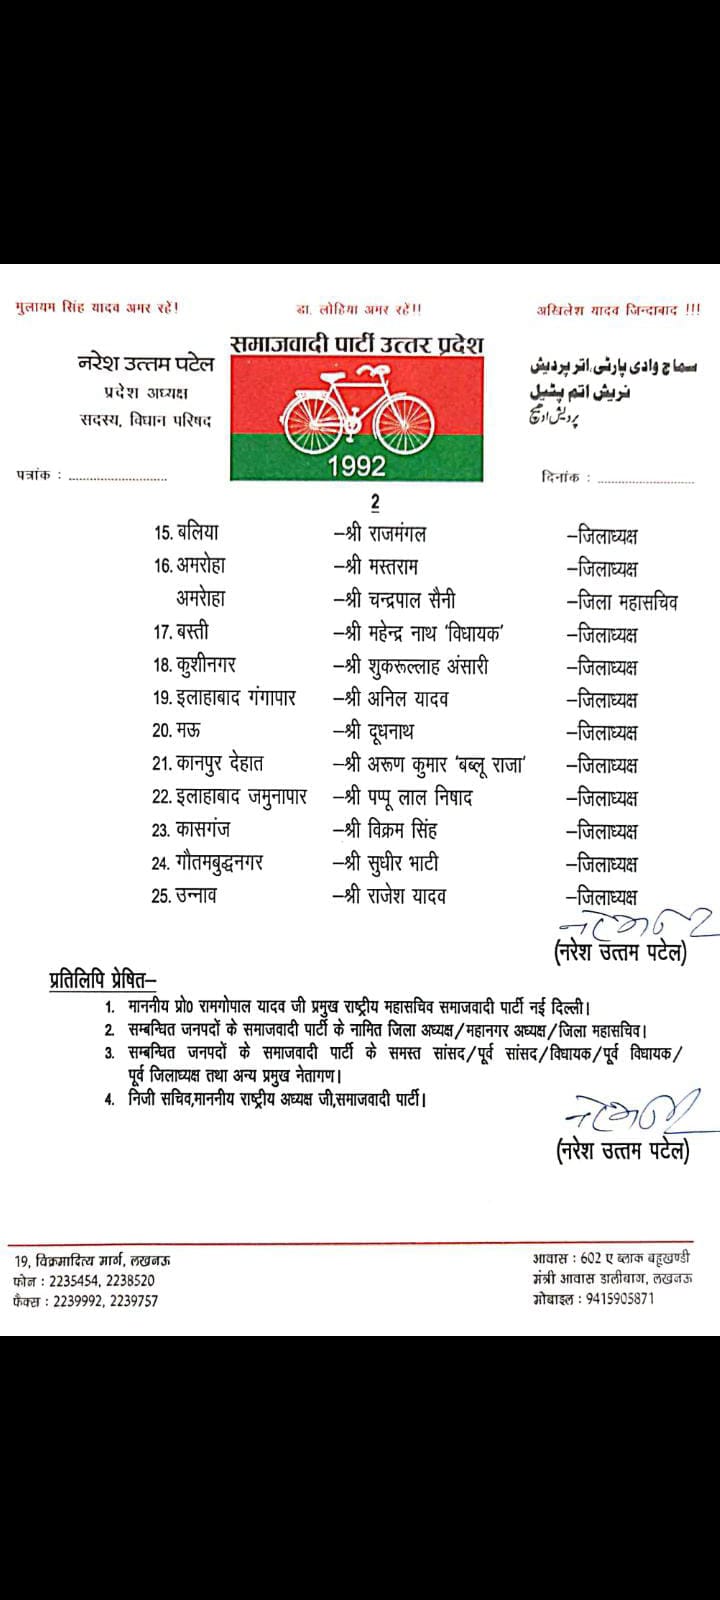 मुलायम सिंह यादव अमर रहें! डा. लोहिया अमर रहें!! अखिलेश यादव जिन्दाबाद !!!
समाजवादी पार्टी उत्तर प्रदेश
नरेश उत्तम पटेल
प्रदेश अध्यक्ष
सदस्य, विधान परिषद
سماج وادی پارٹی، اتر پردیش
نریش اتم پٹیل
پردیش ادھیکچھ
1992
पत्रांक : ........................... दिनांक : ...........................
2
15. बलिया –श्री राजमंगल –जिलाध्यक्ष
16. अमरोहा –श्री मस्तराम –जिलाध्यक्ष
अमरोहा –श्री चन्द्रपाल सैनी –जिला महासचिव
17. बस्ती –श्री महेन्द्र नाथ ‘विधायक’ –जिलाध्यक्ष
18. कुशीनगर –श्री शुकरूल्लाह अंसारी –जिलाध्यक्ष
19. इलाहाबाद गंगापार –श्री अनिल यादव –जिलाध्यक्ष
20. मऊ –श्री दूधनाथ –जिलाध्यक्ष
21. कानपुर देहात –श्री अरूण कुमार ‘बब्लू राजा’ –जिलाध्यक्ष
22. इलाहाबाद जमुनापार –श्री पप्पू लाल निषाद –जिलाध्यक्ष
23. कासगंज –श्री विक्रम सिंह –जिलाध्यक्ष
24. गौतमबुद्धनगर –श्री सुधीर भाटी –जिलाध्यक्ष
25. उन्नाव –श्री राजेश यादव –जिलाध्यक्ष
(नरेश उत्तम पटेल)
प्रतिलिपि प्रेषित–
1. माननीय प्रो0 रामगोपाल यादव जी प्रमुख राष्ट्रीय महासचिव समाजवादी पार्टी नई दिल्ली।
2. सम्बन्धित जनपदों के समाजवादी पार्टी के नामित जिला अध्यक्ष/महानगर अध्यक्ष/जिला महासचिव।
3. सम्बन्धित जनपदों के समाजवादी पार्टी के समस्त सांसद/पूर्व सांसद/विधायक/पूर्व विधायक/
पूर्व जिलाध्यक्ष तथा अन्य प्रमुख नेतागण।
4. निजी सचिव,माननीय राष्ट्रीय अध्यक्ष जी,समाजवादी पार्टी।
(नरेश उत्तम पटेल)
19, विक्रमादित्य मार्ग, लखनऊ
फोन : 2235454, 2238520
फैक्स : 2239992, 2239757
आवास : 602 ए ब्लाक बहूखण्डी
मंत्री आवास डालीबाग, लखनऊ
मोबाइल : 9415905871